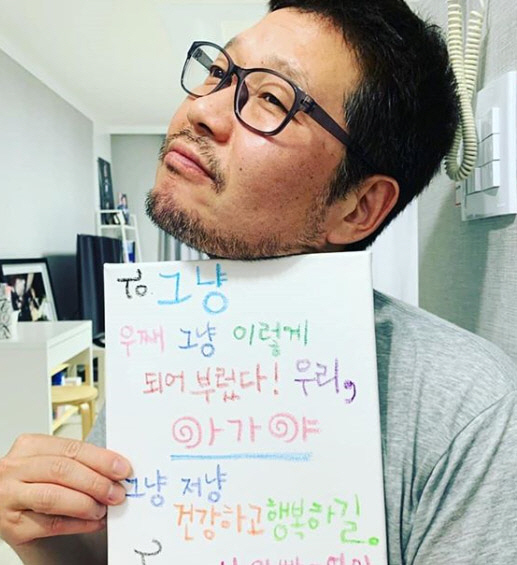 To. 그냥
우째 그냥 이렇게
되어 부렀다! 우리,
아가야
그냥 저냥
건강하고 행복하길.